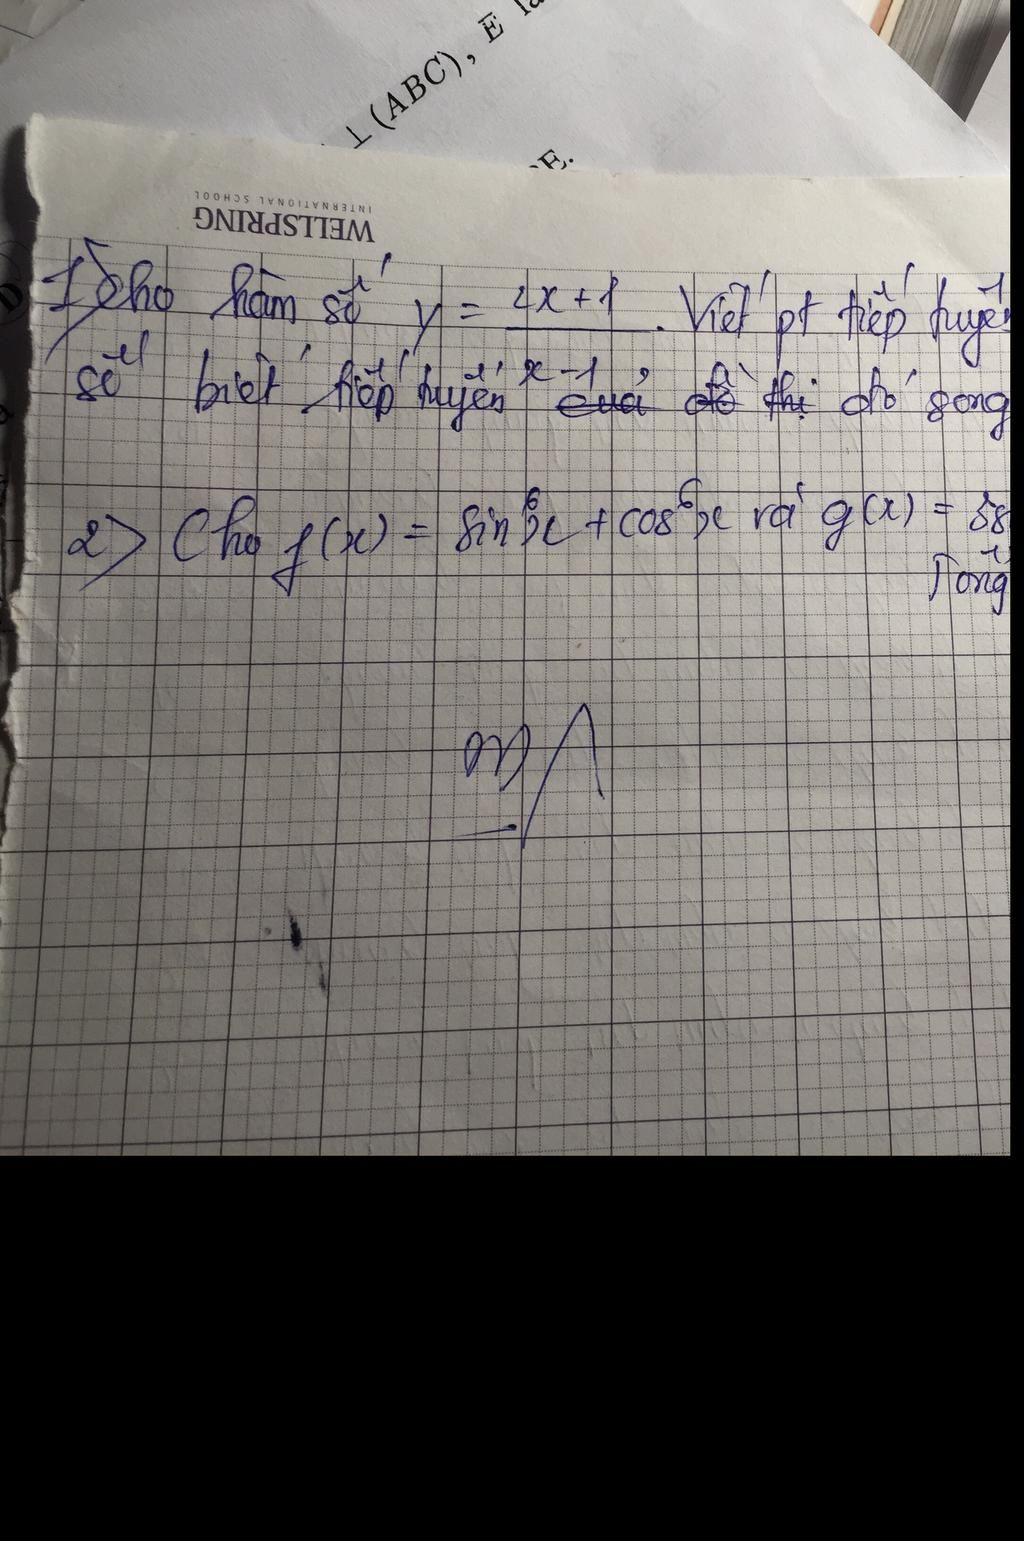 ⊥ (ABC), E là
E.
WELLSPRING
INTERNATIONAL SCHOOL
1) Cho hàm số y = 2x+1 / x-1 . Viết pt tiếp tuyến
số biết tiếp tuyến của đồ thị đó song
2) Cho f(x) = sin⁶x + cos⁶x và g(x) = 3s
Tổng